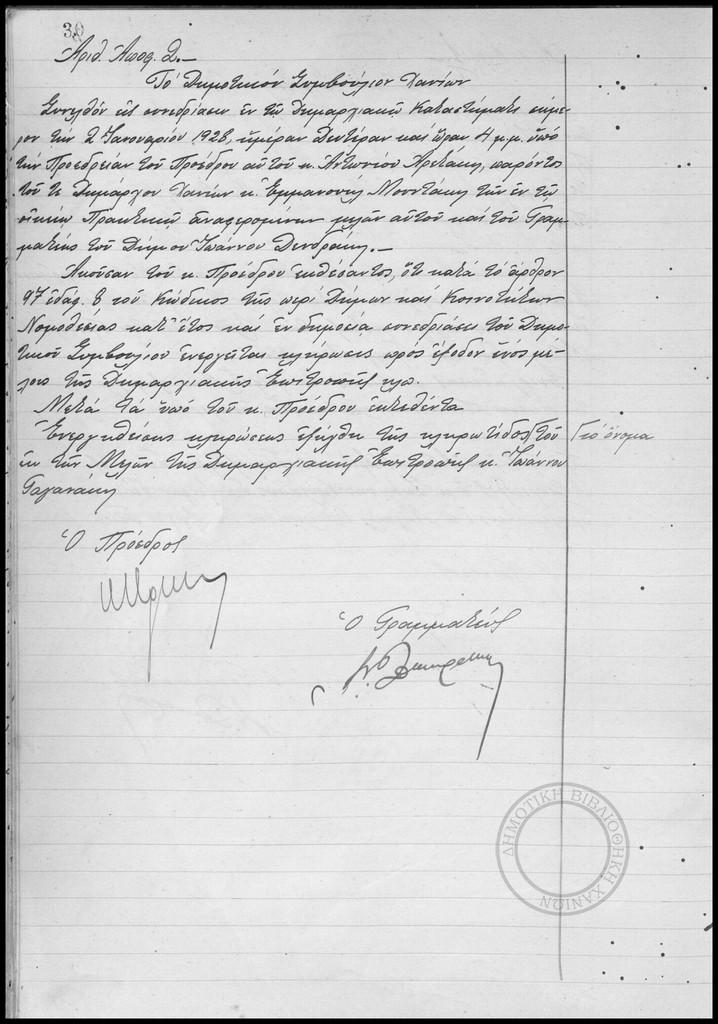 30
Ἀριθ. Ἀποφ. 2.—
Τὸ Δημοτικόν Συμβούλιον Χανίων
Συνελθόν εἰς συνεδρίασιν ἐν τῷ Δημαρχιακῷ Καταστήματι σήμε-
ρον τὴν 2 Ἰανουαρίου 1928, ἡμέραν Δευτέραν καὶ ὥραν 4 μ.μ. ὑπό
τὴν Προεδρείαν τοῦ Προέδρου αὐτοῦ κ. Ἀντωνίου παρόντος
τοῦ τε Δημάρχου Χανίων κ. Ἐμμανουήλ Μουντάκη τῶν ἐν τῷ
Πρακτικῷ ἀναφερομένων μελῶν αὐτοῦ καὶ τοῦ Γραμ-
ματέως τοῦ Δήμου Ἰωάννου Δενδράκη.—
Ἀκοῦσαν τοῦ κ. Προέδρου ἐκθέσαντος, ὅτι κατά τὸ ἄρθρον
97 ἐδάφ. 8 τοῦ Κώδικος τῆς περί Δήμων καὶ Κοινοτήτων
Νομοθεσίας κατ' ἔτος καὶ ἐν δημοσίᾳ συνεδριάσει τοῦ Δημο-
τικοῦ Συμβουλίου ἐνεργεῖται κλήρωσις πρός ἔξοδον ἑνός μέ-
λους τῆς Δημαρχιακῆς Ἐπιτροπῆς κλπ.
Μετά τὰ ὑπό τοῦ κ. Προέδρου ἐκτεθέντα
Ἐνεργηθείσης κληρώσεως ἐξήχθη τῆς κληρωτίδος τοῦ
ἐκ τῶν Μελῶν τῆς Δημαρχιακῆς Ἐπιτροπῆς κ. Ἰωάννου
Γαγανάκη
τὸ ὄνομα
Ὁ Πρόεδρος
Ὁ Γραμματεύς
ΔΗΜΟΤΙΚΗ ΒΙΒΛΙΟΘΗΚΗ ΧΑΝΙΩΝ